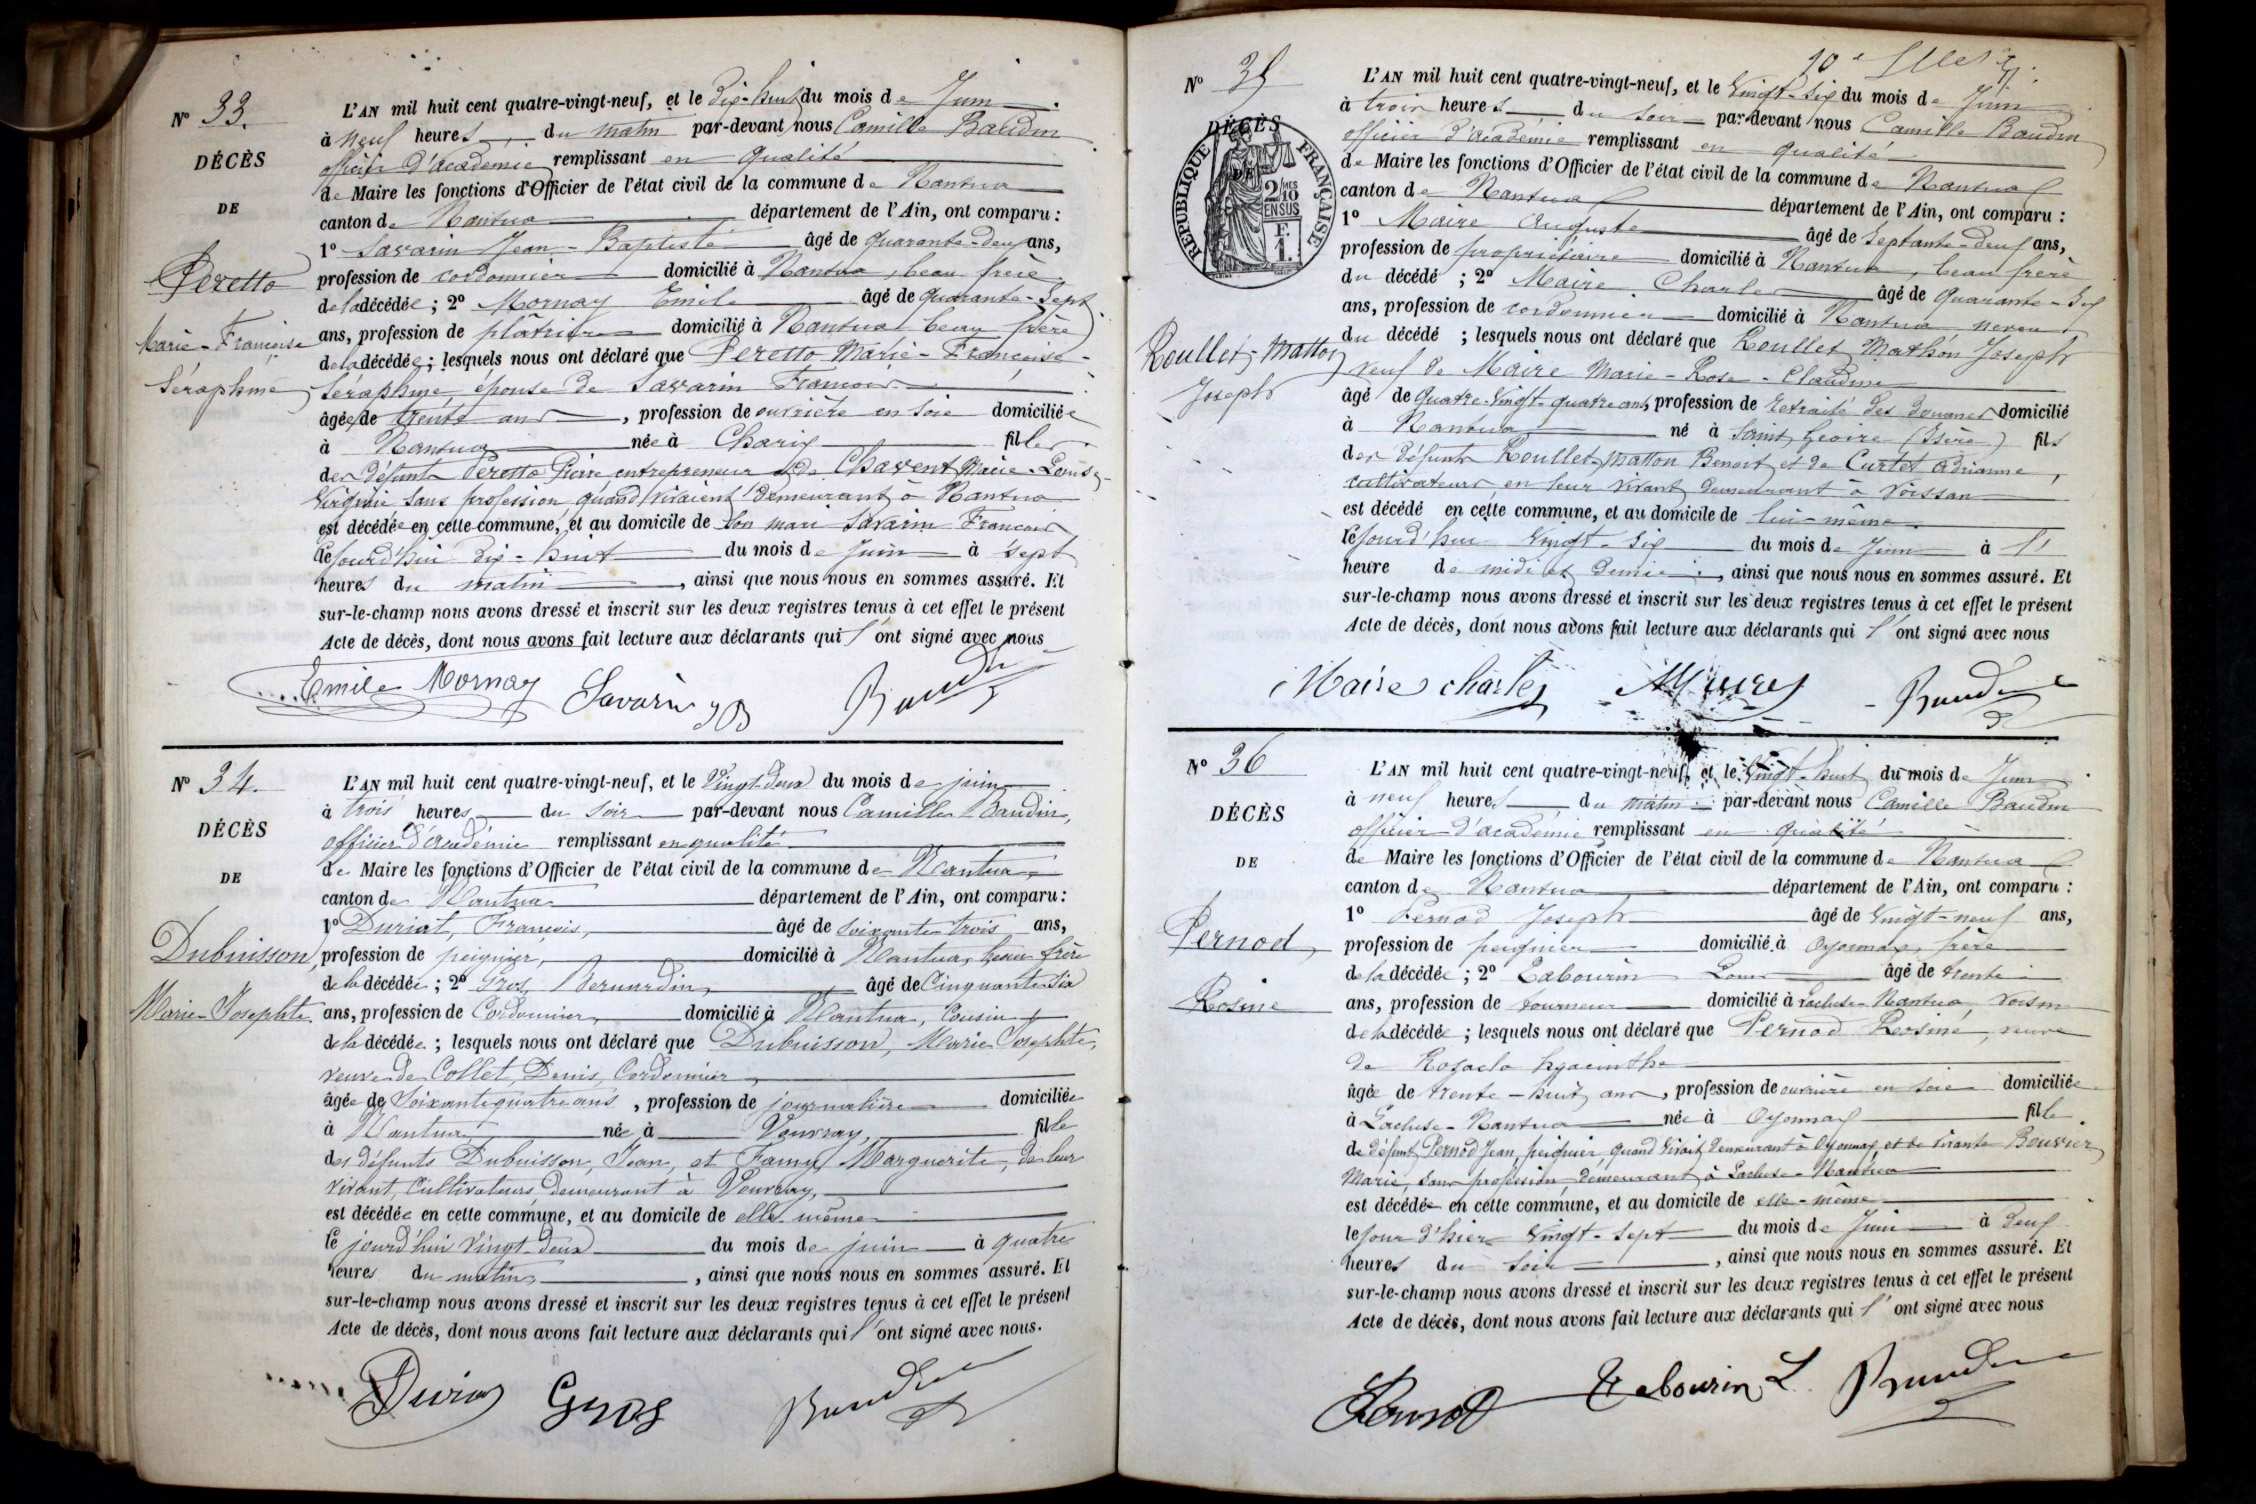 N° 33.
DÉCÈS
DE
Peretto
Marie-Françoise
Séraphine
L'AN mil huit cent quatre-vingt-neuf, et le dix-huit du mois de Juin
à neuf heures du matin par-devant nous Camille Baudin
officier d'académie remplissant en qualité
de Maire les fonctions d'Officier de l'état civil de la commune de Nantua
canton de Nantua département de l'Ain, ont comparu :
1° Savarin Jean-Baptiste âgé de quarante-deux ans,
profession de cordonnier domicilié à Nantua, beau frère
de la décédée ; 2° Mornay Emile âgé de quarante-sept
ans, profession de plâtrier domicilié à Nantua beau frère
de la décédée ; lesquels nous ont déclaré que Peretto Marie-Françoise-
Séraphine épouse de Savarin François
âgée de trente ans, profession de ouvrière en soie domiciliée
à Nantua née à Charix fille
des défunts Peretto Pierre entrepreneur & de Chavent Marie-Louise-
Virginie sans profession quand vivaient demeurant à Nantua
est décédée en cette commune, et au domicile de son mari Savarin François
le jourd'hui dix-huit du mois de Juin à sept
heures du matin, ainsi que nous nous en sommes assuré. Et
sur-le-champ nous avons dressé et inscrit sur les deux registres tenus à cet effet le présent
Acte de décès, dont nous avons fait lecture aux déclarants qui l'ont signé avec nous
Emile Mornay Savarin JB Baudin
N° 34.
DÉCÈS
DE
Dubuisson,
Marie-Josephte.
L'AN mil huit cent quatre-vingt-neuf, et le Vingt-deux du mois de juin
à trois heures du soir par-devant nous Camille Baudin,
officier d'académie remplissant en qualité
de Maire les fonctions d'Officier de l'état civil de la commune de Nantua
canton de Nantua département de l'Ain, ont comparu :
1° Duriat, François, âgé de soixante-trois ans,
profession de peignier, domicilié à Nantua, beau frère
de la décédée ; 2° Gros, Bernardin, âgé de Cinquante-six
ans, profession de Cordonnier, domicilié à Nantua, Cousin
de la décédée ; lesquels nous ont déclaré que Dubuisson, Marie Josephte,
veuve de Collet, Denis, Cordonnier
âgée de Soixante quatre ans, profession de journalière domiciliée
à Nantua née à Vouvray, fille
des défunts Dubuisson, Jean, et Famy, Marguerite, de leur
vivant, Cultivateurs, demeurant à Vouvray,
est décédée en cette commune, et au domicile de elle même
le jourd'hui Vingt-deux du mois de juin à quatre
heures du matin, ainsi que nous nous en sommes assuré. Et
sur-le-champ nous avons dressé et inscrit sur les deux registres tenus à cet effet le présent
Acte de décès, dont nous avons fait lecture aux déclarants qui l'ont signé avec nous.
Duriat Gros Baudin
N° 35
DÉCÈS
DE
RÉPUBLIQUE FRANÇAISE
2/10 MES
EN SUS
F.
1.
Roullet-Matton
Joseph
10e
L'AN mil huit cent quatre-vingt-neuf, et le Vingt-six du mois de Juin
à trois heures du soir par-devant nous Camille Baudin
officier d'académie remplissant en qualité
de Maire les fonctions d'Officier de l'état civil de la commune de Nantua
canton de Nantua département de l'Ain, ont comparu :
1° Maire Auguste âgé de septante-deux ans,
profession de propriétaire domicilié à Nantua, beau frère
du décédé ; 2° Maire Charles âgé de quarante-six
ans, profession de cordonnier domicilié à Nantua neveu
du décédé ; lesquels nous ont déclaré que Roullet Mathon Joseph
veuf de Maire Marie-Rose-Claudine
âgé de quatre-vingt-quatre ans, profession de retraité des douanes domicilié
à Nantua né à Saint Geoire (Isère) fils
des défunts Roullet-Matton Benoit et de Curtet Adrianne,
cultivateurs en leur vivant demeurant à Voissan
est décédé en cette commune, et au domicile de lui-même
le jourd'hui Vingt-six du mois de Juin à l'
heure de midi et demie, ainsi que nous nous en sommes assuré. Et
sur-le-champ nous avons dressé et inscrit sur les deux registres tenus à cet effet le présent
Acte de décès, dont nous avons fait lecture aux déclarants qui l'ont signé avec nous
Maire charles Baudin
N° 36
DÉCÈS
DE
Pernod
Rosine
L'AN mil huit cent quatre-vingt-neuf, et le Vingt-huit du mois de Juin
à neuf heures du matin par-devant nous Camille Baudin
officier d'académie remplissant en qualité
de Maire les fonctions d'Officier de l'état civil de la commune de Nantua
canton de Nantua département de l'Ain, ont comparu :
1° Pernod Joseph âgé de Vingt-neuf ans,
profession de peignier domicilié à Oyonnax, frère
de la décédée ; 2° Tabourin Louis âgé de trente
ans, profession de tourneur domicilié à Lacluse-Nantua, voisin
de la décédée ; lesquels nous ont déclaré que Pernod Rosine, veuve
de Hyacinthe
âgée de trente-huit ans, profession de ouvrière en soie domiciliée
à Lacluse-Nantua née à Oyonnax fille
de défunt Pernod Jean, peignier quand vivait demeurant à Oyonnax, et de vivante Bouvier
Marie, sans profession demeurant à Lacluse-Nantua
est décédée en cette commune, et au domicile de elle-même
le jour d'hier Vingt-sept du mois de Juin à deux
heures du soir, ainsi que nous nous en sommes assuré. Et
sur-le-champ nous avons dressé et inscrit sur les deux registres tenus à cet effet le présent
Acte de décès, dont nous avons fait lecture aux déclarants qui l'ont signé avec nous
Pernod Tabourin L Baudin